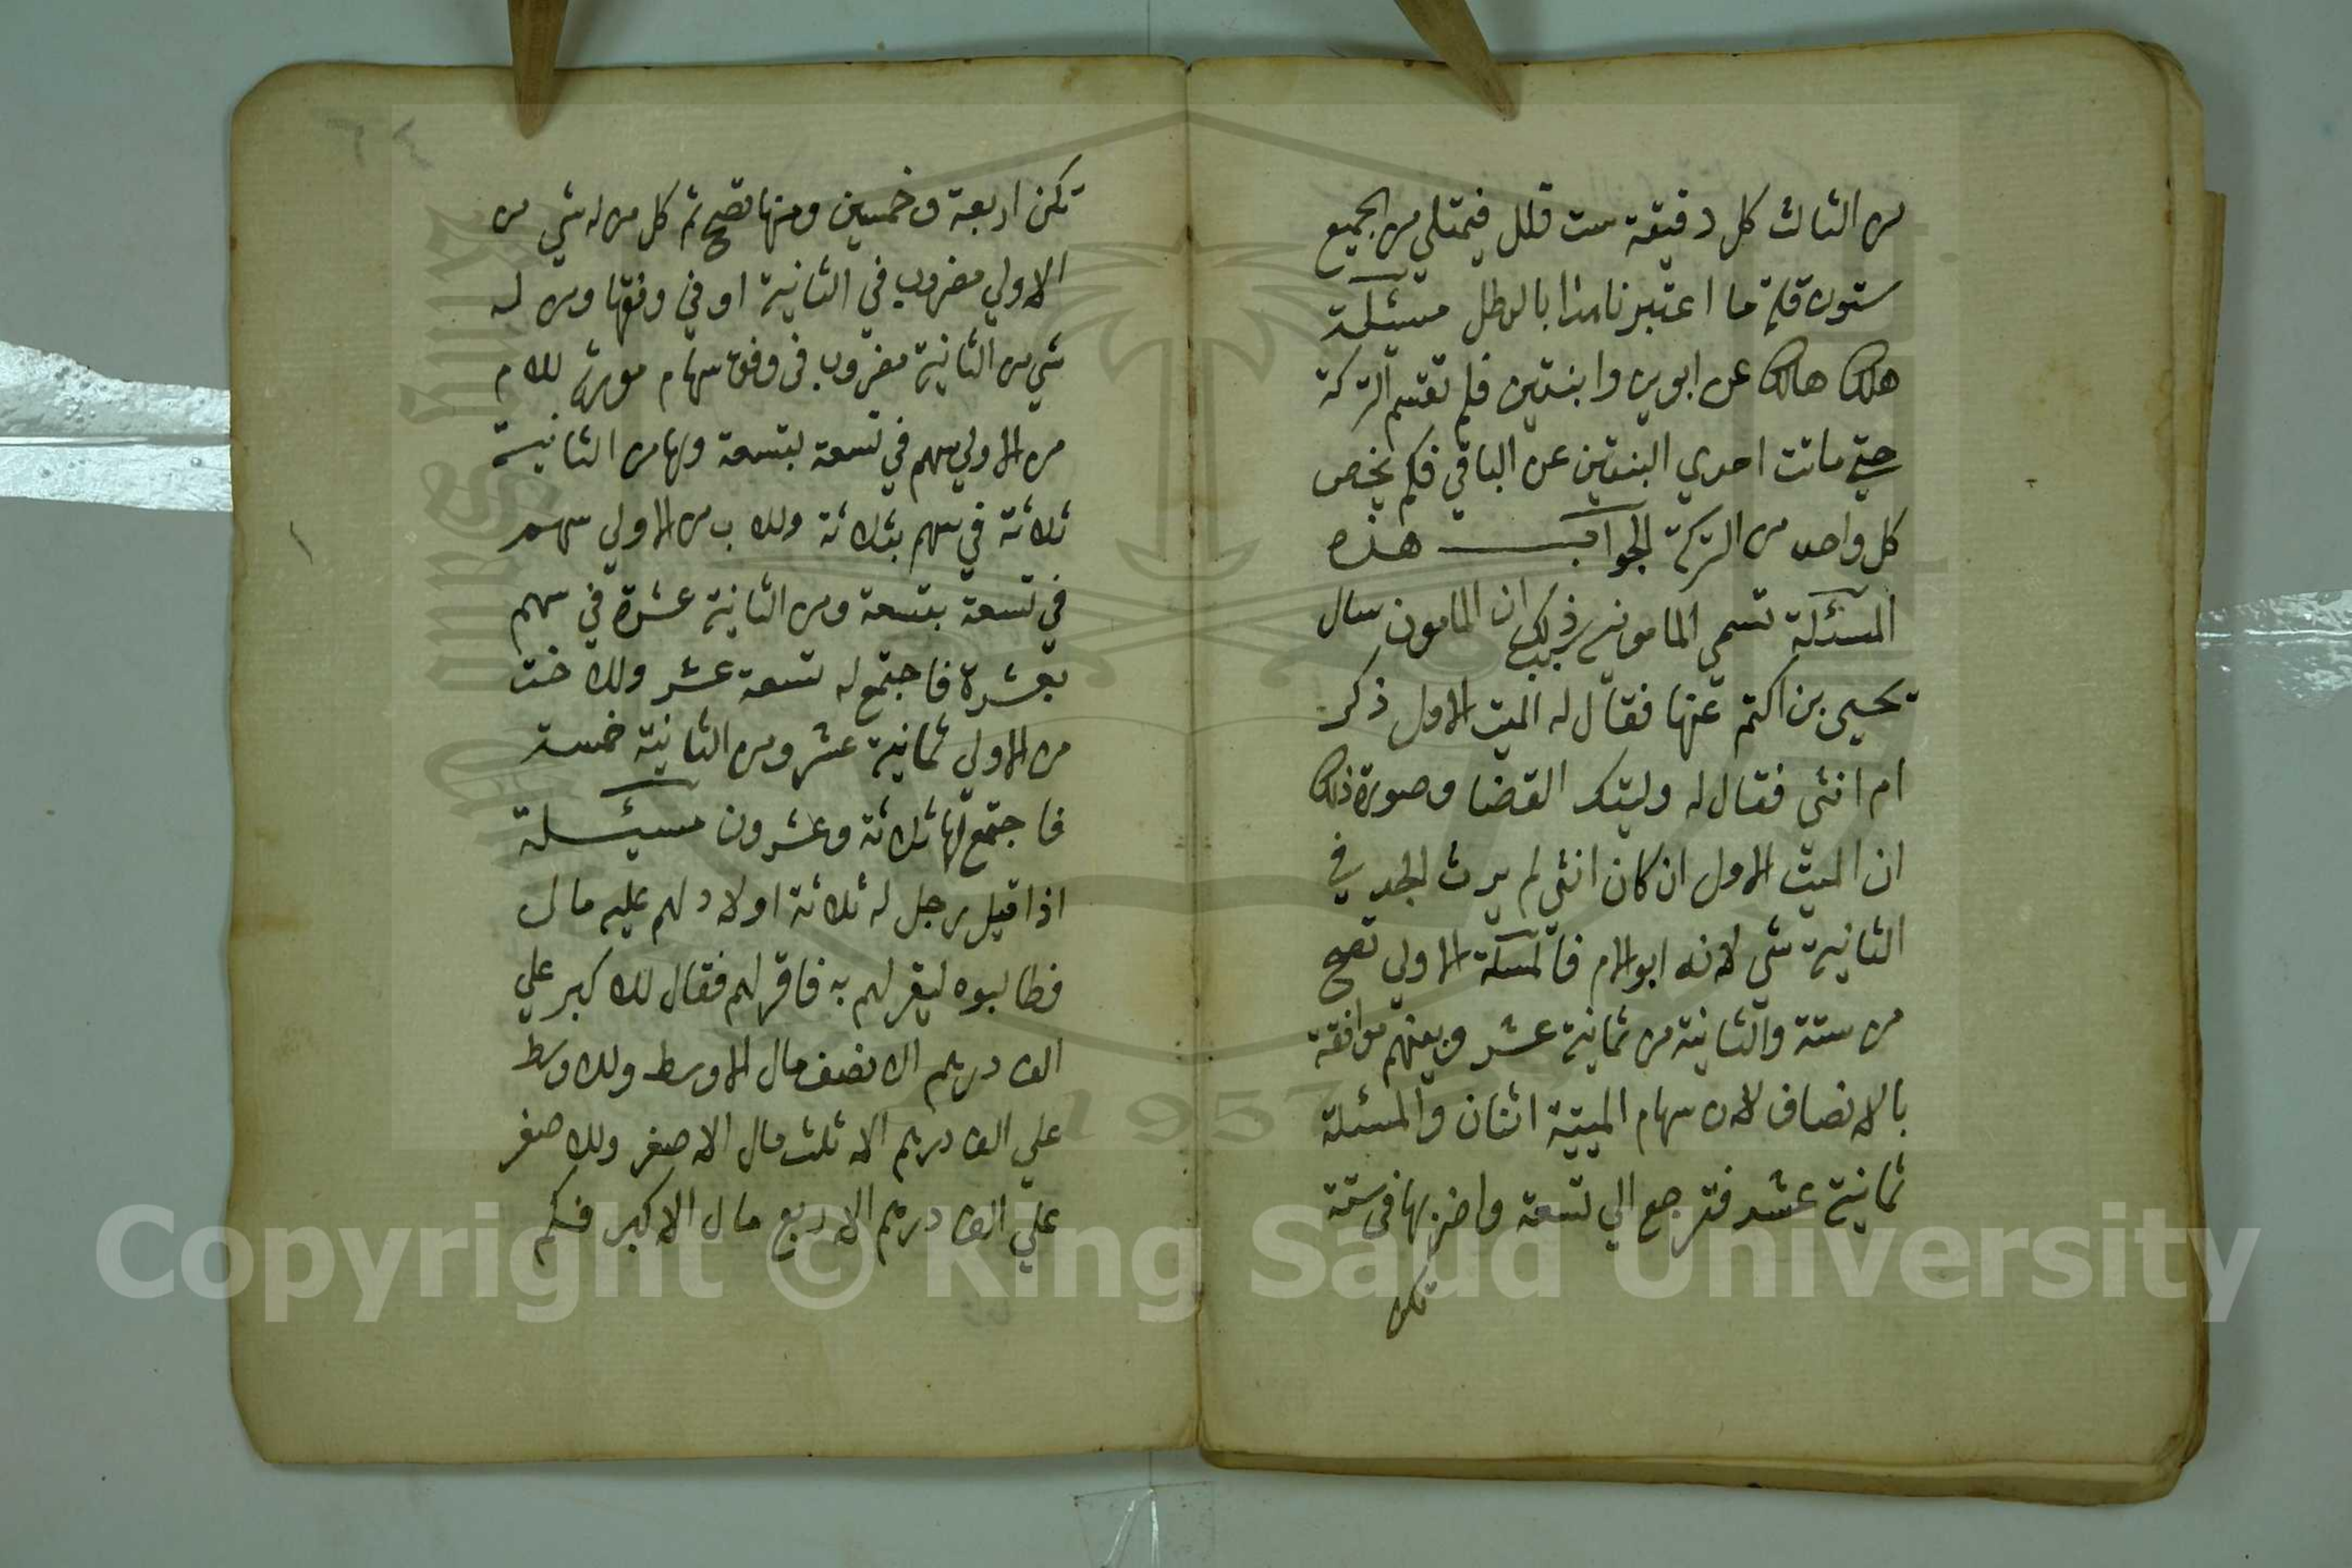 من الثالث كل دقيقة ست قلل فيمتلي من الجميع
ستون قلة ما اعتبرناهذا بالرطل مسئلة
هلك هالك عن ابوين وابنتين فلم تقتسم التركة
حتي ماتت احدي البنتين عن الباقي فكم يخص
كل واحد من التركة الجواب هذه
المسئلة تسمي المامونيه سبب ذلك ان المامون سال
يحيي بن اكتم عنها فقال له الميت الاول ذكر
ام انثي فقال له وليتك القضا وصورة ذلك
ان الميت الاول ان كان انثي لم يرث الجد في
الثانية شي لانه ابو الام فالمسئلة الاولي تصح
من ستة والثانية من ثمانية عشر وبينهم موافقة
بالانصاف لان سهام الميتية اثنان والمسئلة
ثمانية عشر فترجع الي تسعة واضربها في ستة
تكن
تكن اربعة وخمسين ومنها تصح ثم كل من له شي من
الاولي مضروب في الثانية او في وفقها ومن له
شي من الثانية مضروب في وفق سهام مورثه للام
من الاولي سهم في تسعة بتسعة ولها من الثانية
ثلاثة في سهم بثلاثة وللاب من الاولي سهم
في تسعة بتسعة ومن الثانية عشرة في سهم
بعشرة فاجتمع له تسعة عشر وللاخت
من الاولي ثمانية عشر ومن الثانية خمسة
فاجتمع لها ثلاثة وعشرون مسيئلة
اذا قيل رجل له ثلاثة اولاد لهم عليه مال
فطالبوه ليقر لهم به فاقر لهم فقال للاكبر علي
الف درهم الا نصف مال الاوسط وللاوسط
علي الف درهم الا ثلث مال الاصغر وللاصغر
علي الف درهم الا ربع مال الاكبر فكم
Copyright © King Saud University
1957